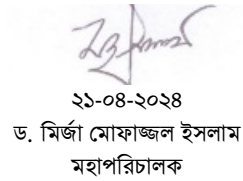 ২১-০৪-২০২৪
ড. মির্জা মোফাজ্জল ইসলাম
মহাপরিচালক